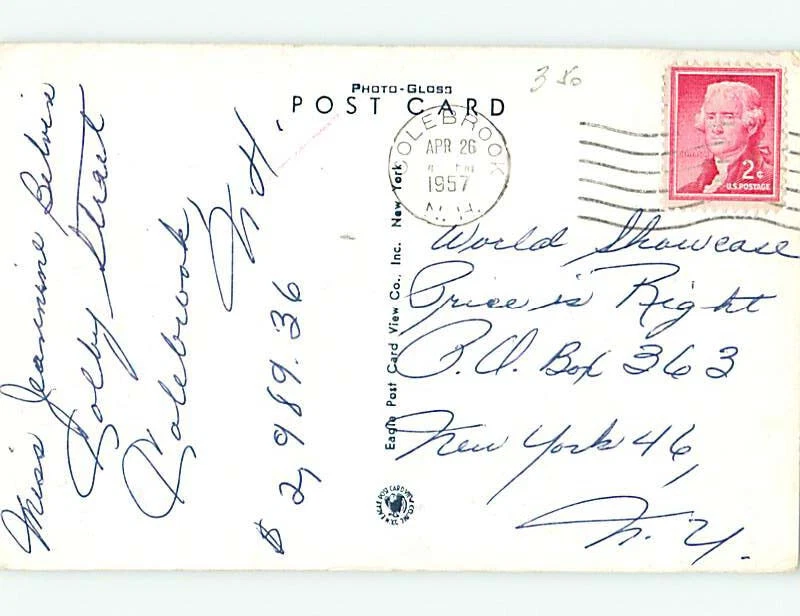 3 50
PHOTO-GLOSS
POST CARD
COLEBROOK
APR 26
1957
N.H.
2¢
U.S. POSTAGE
Miss Jeannine
Colby Street
Colebrook,
N.H.
$2,989.36
Eagle Post Card View Co., Inc. New York
World Showcase
Price is Right
P.O. Box 363
New York 46,
N.Y.